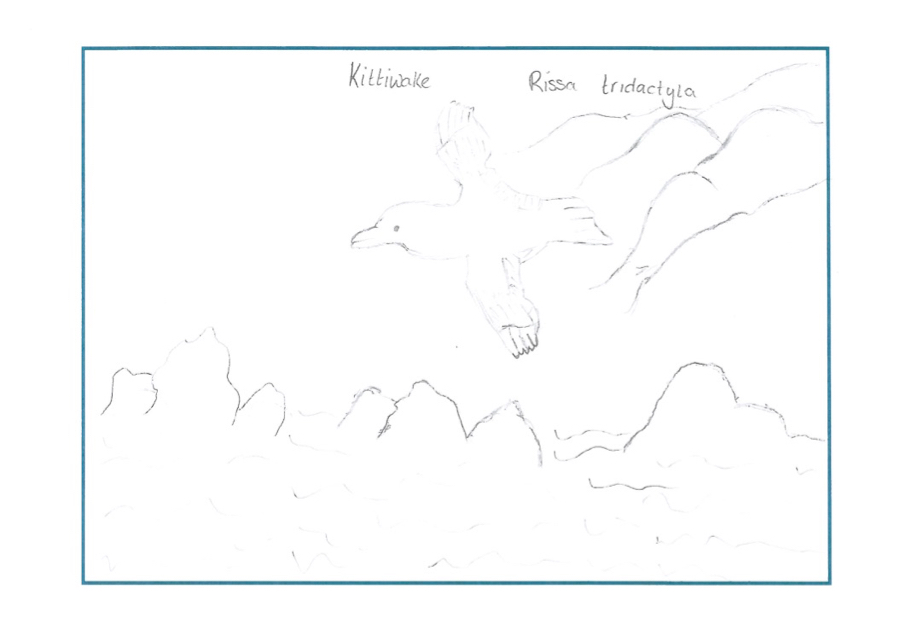 Kittiwake Rissa tridactyla